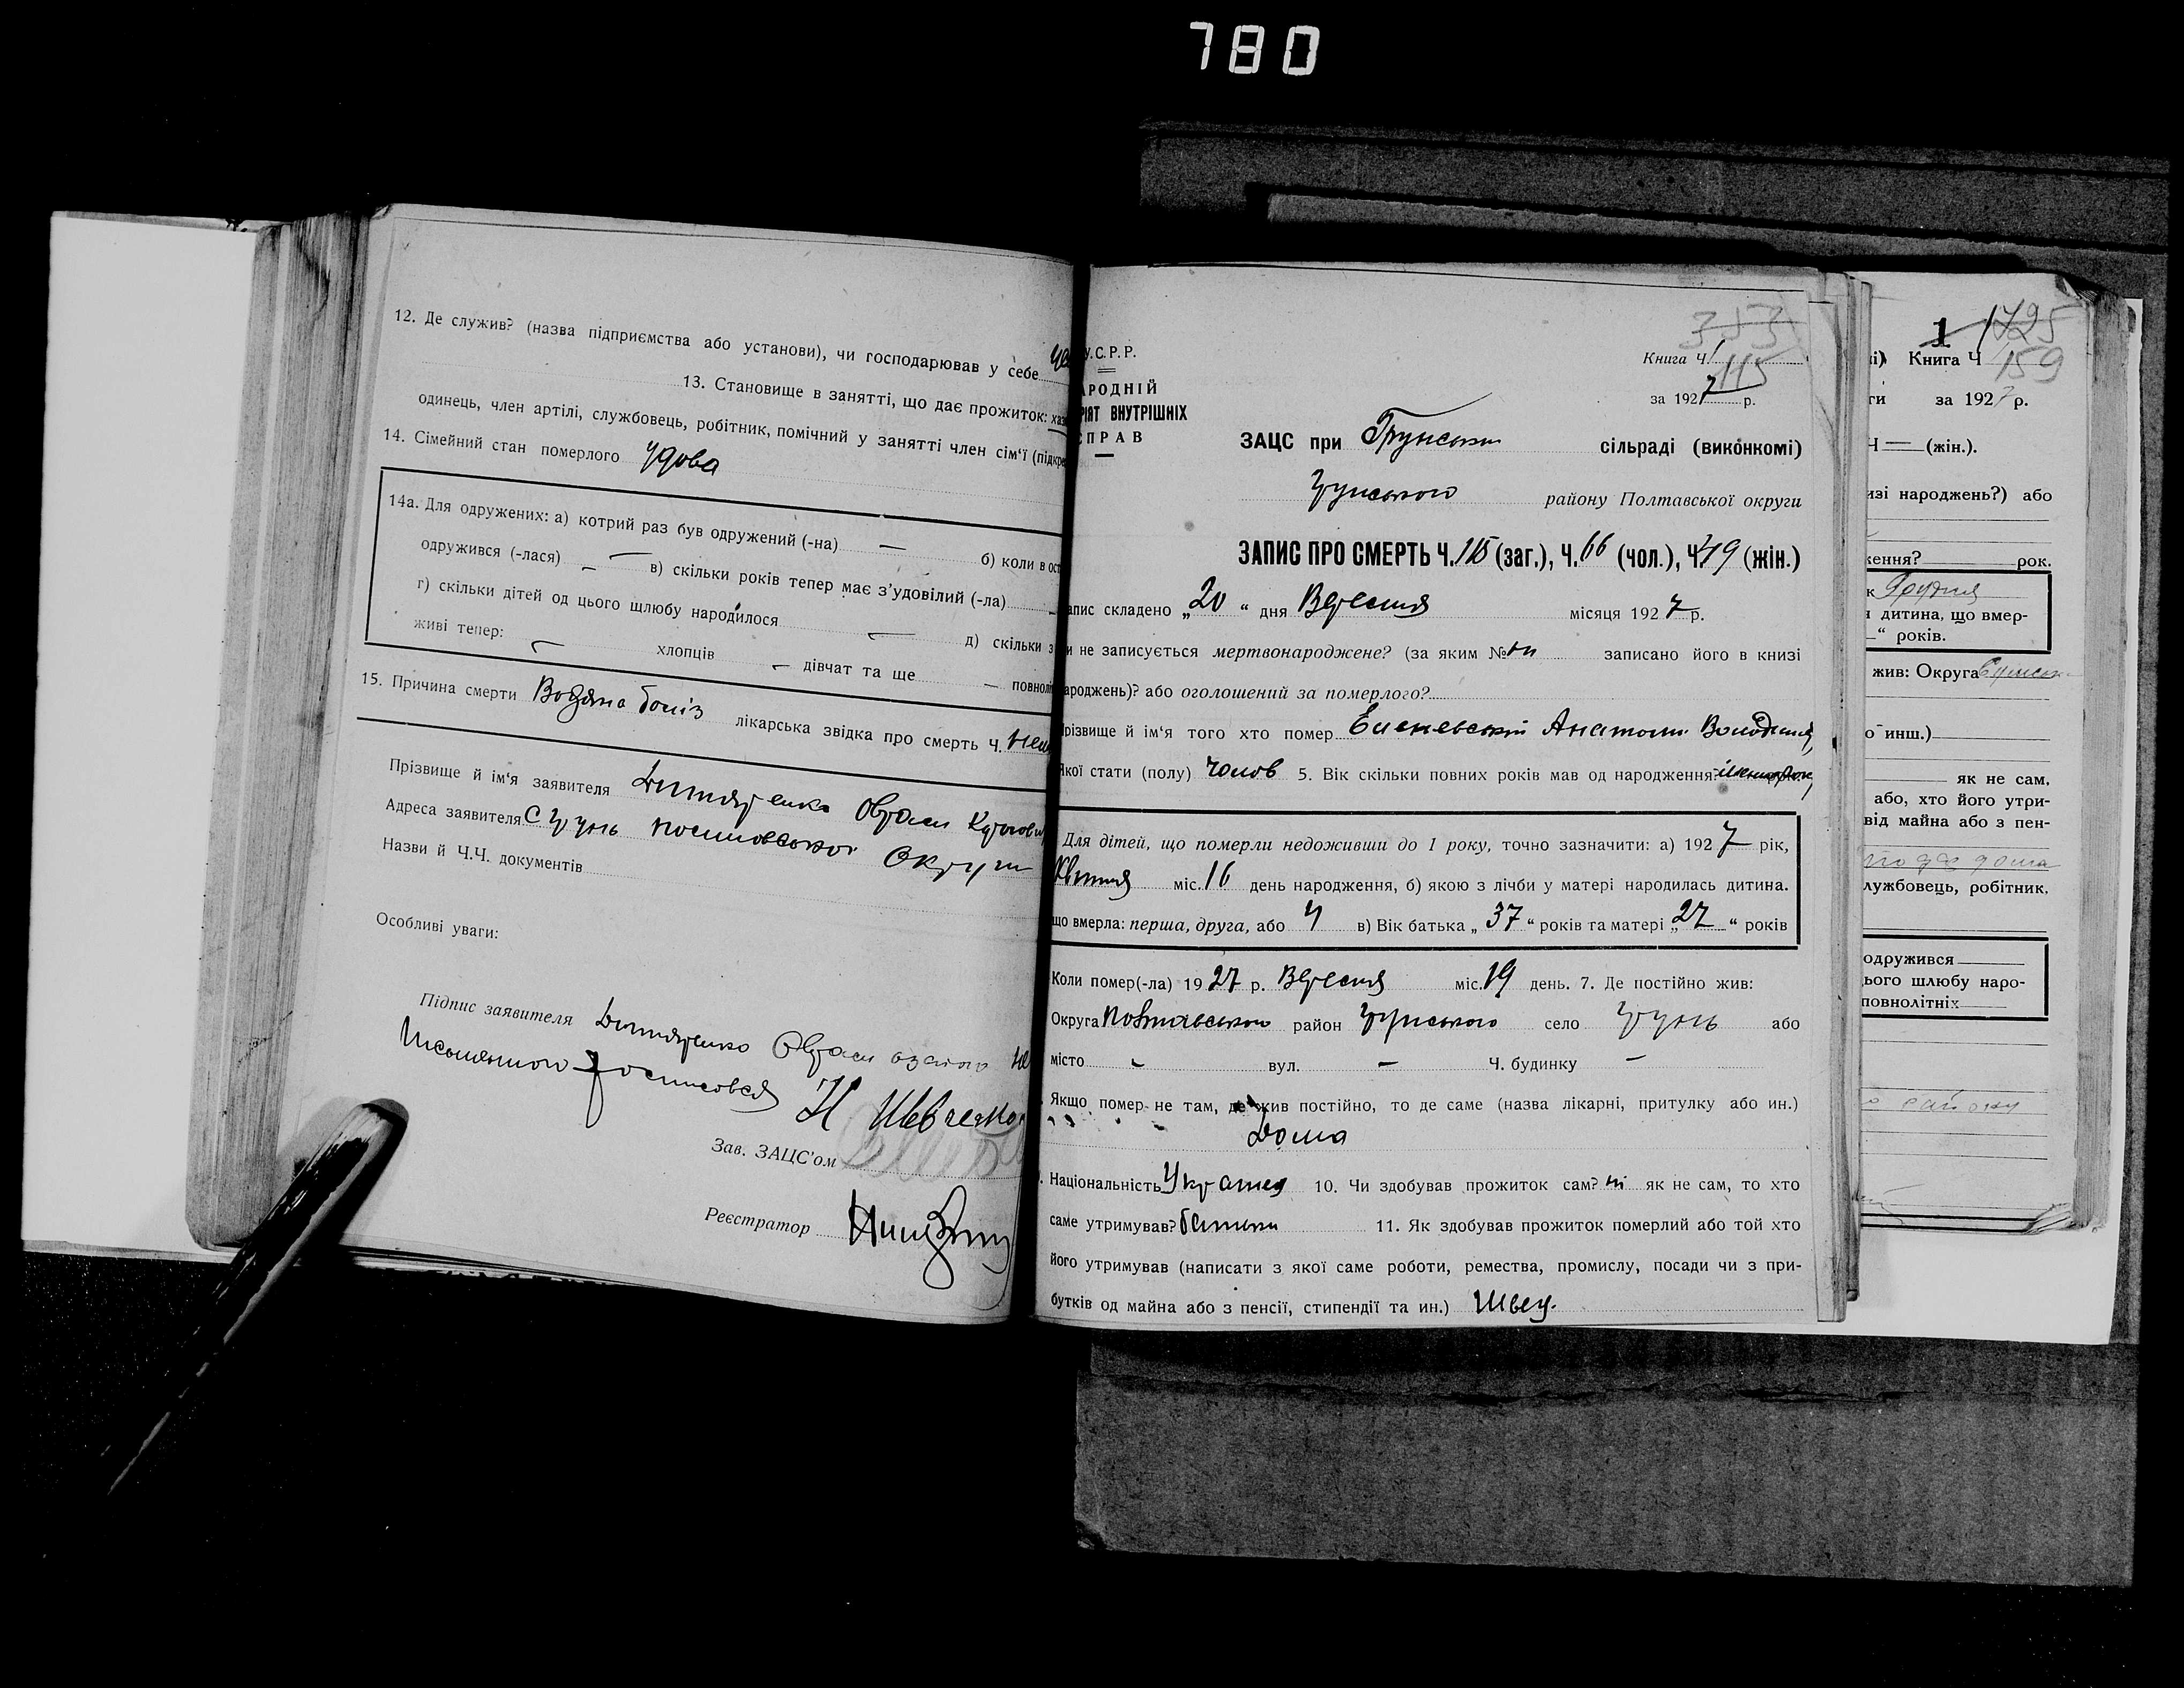 780
12. Де служив? (назва підприємства або установи), чи господарював у себе
13. Становище в занятті, що дає прожиток: хаз
одинець, член артілі, службовець, робітник, помічний у занятті член сім'ї (підкре
14. Сімейний стан померлого удова
14а. Для одружених: а) котрий раз був одружений (-на) — б) коли в ост
одружився (-лася) — в) скільки років тепер має з'удовілий (-ла)
г) скільки дітей од цього шлюбу народилося — д) скільки з
живі тепер: — хлопців — дівчат та ще — повноліт
15. Причина смерти Водяна лікарська звідка про смерть Ч.
Прізвище й ім'я заявителя
Адреса заявителя с Грунь Округи
Назви й Ч.Ч. документів
Особливі уваги:
Підпис заявителя
Н Шевченко
Зав. ЗАЦС'ом
Реєстратор
У.С.Р.Р.
АРОДНІЙ
РІЯТ ВНУТРІШНІХ
СПРАВ
353
Книга Ч. 1
115
за 1927 р.
ЗАЦС при Грунськи сільраді (виконкомі)
Грунського району Полтавської округи
ЗАПИС ПРО СМЕРТЬ Ч. 115 (заг.), Ч. 66 (чол.), Ч. 49 (жін.)
апис складено „20“ дня Вересня місяця 1927 р.
и не записується мертвонароджене? (за яким № ни записано його в книзі
ароджень)? або оголошений за померлого?
різвище й ім'я того хто помер Анатолій
Якої стати (полу) чолов 5. Вік скільки повних років мав од народження
Для дітей, що померли недоживши до 1 року, точно зазначити: а) 1927 рік,
Квітня міс. 16 день народження, б) якою з лічби у матері народилась дитина.
що вмерла: перша, друга, або 4 в) Вік батька „37“ років та матері „27“ років
Коли помер(-ла) 1927 р. Вересня міс. 19 день. 7. Де постійно жив:
Округа Полтавської район Грунського село Грунь або
місто - вул. — Ч. будинку —
Якщо помер не там, де жив постійно, то де саме (назва лікарні, притулку або ин.)
Дома
Національність Україн 10. Чи здобував прожиток сам? ні як не сам, то хто
саме утримував? батьки 11. Як здобував прожиток померлий або той хто
його утримував (написати з якої саме роботи, ремества, промислу, посади чи з при-
бутків од майна або з пенсії, стипендії та ин.) Швец.
1 1725
і) Книга Ч 159
ги за 1927 р.
Ч — (жін.).
изі народжень?) або
ження? рок.
к Грудня
я дитина, що вмер-
—“ років.
жив: Округа
о инш.)
як не сам,
або, хто його утри-
від майна або з пен-
лужбовець, робітник,
одружився
ього шлюбу наро-
повнолітніх
району